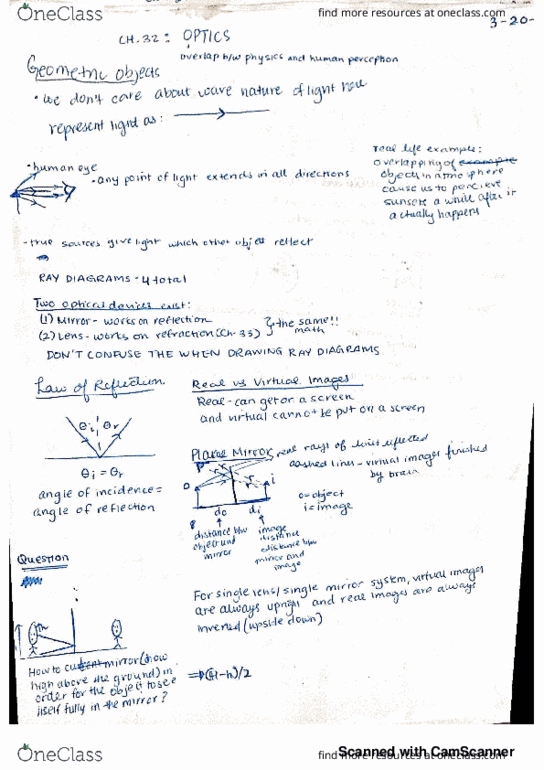 OneClass
find more resources at oneclass.com
3-20-
CH.32: OPTICS
overlap b/w physics and human perception
Geometric Objects
• we don't care about wave nature of light now
represent light as:
• human eye
• any point of light extends in all directions
real life example:
overlapping of
objects in atmosphere
cause us to percieve
sunsets a while after it
actually happens
• true sources give light which other objects reflect
RAY DIAGRAMS - 4 total
Two optical devices exist:
(1) Mirror - works on reflection
(2) Lens - works on refraction (Ch. 35)
the same!!
math
DON'T CONFUSE THE WHEN DRAWING RAY DIAGRAMS
Law of Reflection
θi θr
θi = θr
angle of incidence =
angle of reflection
Real vs Virtual Images
Real - can get on a screen
and virtual cannot be put on a screen
Plane Mirror
real rays of light reflected
dashed lines - virtual images finished
by brain
P
O
i
do
di
o=object
i=image
distance b/w
object and
mirror
image
distance
distance b/w
mirror and
image
For single lens/single mirror system, virtual images
are always upright and real images are always
inverted (upside down)
Question
How to cut mirror (how
high above the ground) in
order for the object to see
itself fully in the mirror?
-h)/2
OneClass
find more resources at oneclass.com
Scanned with CamScanner